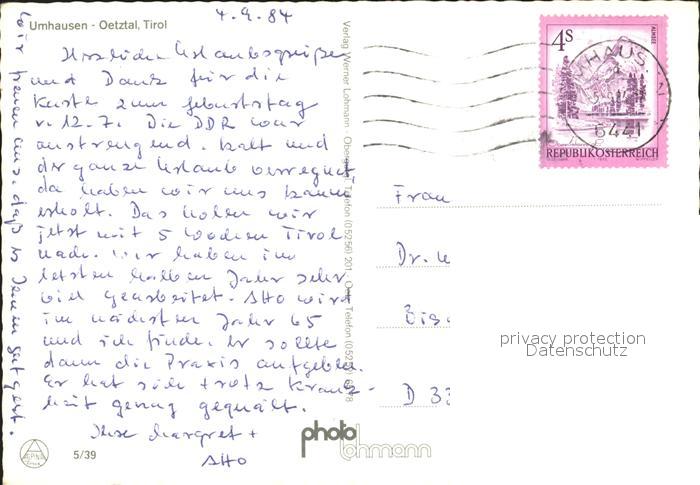 4.9.84
Umhausen - Oetztal, Tirol
Herzliche Urlaubsgrüße
und Dank für die
Karte zum Geburtstag
v. 12.7. Die DDR war
anstrengend, kalt und
der ganze Urlaub verregnet,
da haben wir uns kaum
erholt. Das holen wir
jetzt mit 5 Wochen Tirol
nach. Wir haben im
letzten halben Jahr sehr
viel gearbeitet. Otto wird
im nächsten Jahr 65
und ich finde, er sollte
dann die Praxis aufgeben.
Er hat sich trotz Krank-
heit genug gequält.
Ihre Margret +
Otto
Wir freuen uns, daß es Ihnen gut geht.
5/39
Verlag Werner Lohmann · Telefon (05256) 201
photo
lohmann
4s
ALMSEE
REPUBLIK ÖSTERREICH
UMHAUSEN
6441
Frau
Dr.
D 33
privacy protection
Datenschutz